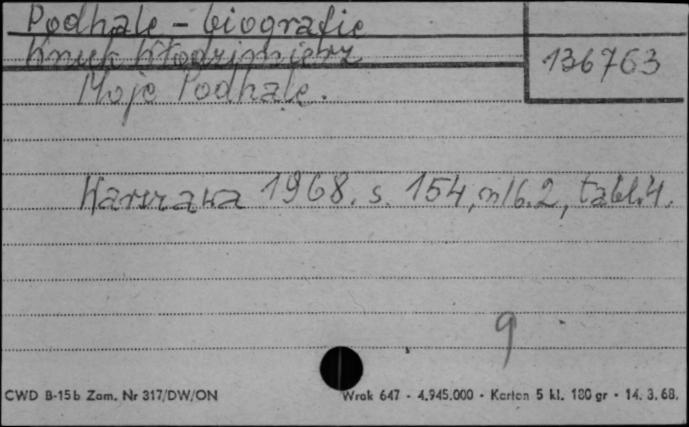 Podhale - biografie
Wnuk Włodzimierz
136763
Moje Podhale.
Warszawa 1968. s. 154, nlb. 2, tabl. 4.
9
CWD B-15b Zam. Nr 317/DW/ON
Wrak 647 - 4.945.000 - Karton 5 kl. 180 gr - 14. 3. 68.